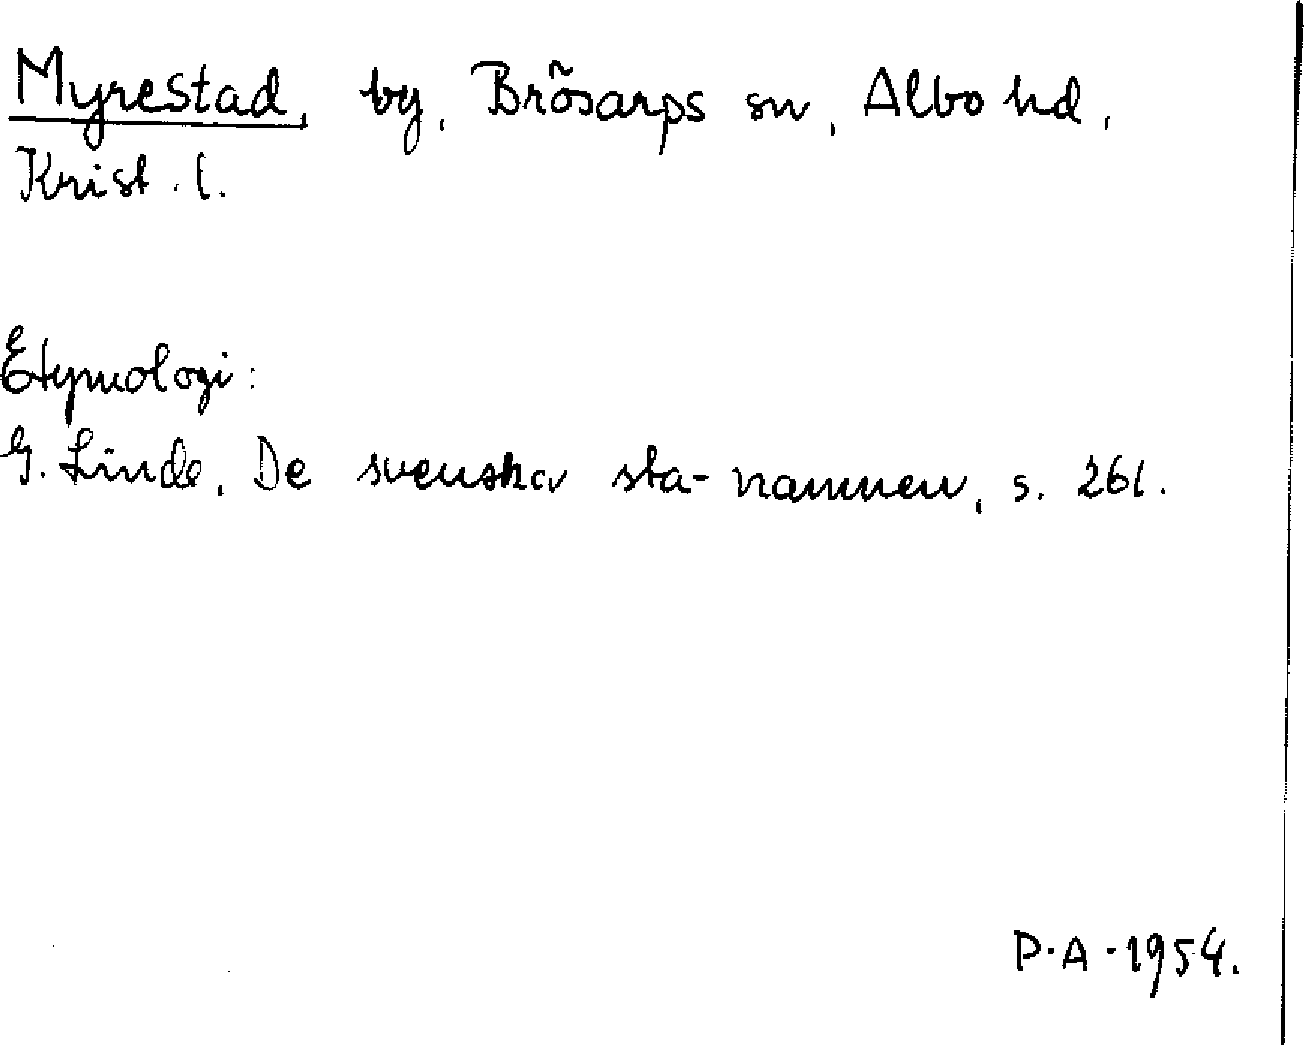 Myrestad, by, Brösarps sn, Albo hd,
Krist. l.
Etymologi:
G. Linde, De svenska sta-namnen, s. 261.
P.A. 1954.